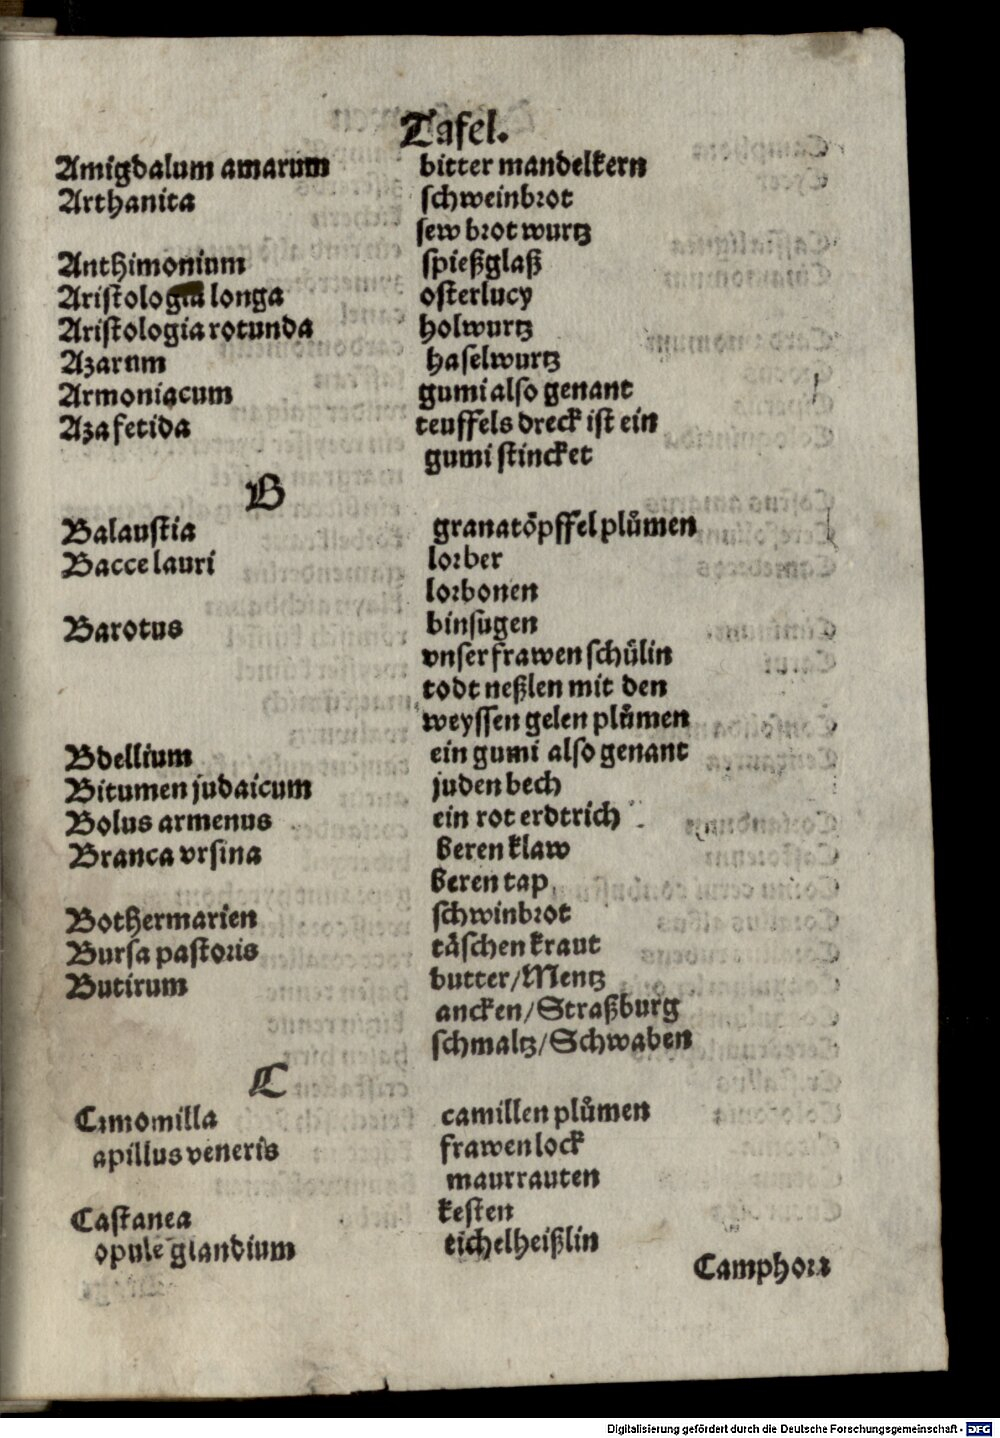 Tafel.
Amigdalum amarum bitter mandelkern
Arthanita schweinbrot
sew brot wurtz
Anthimonium spießglaß
Aristologia longa osterlucy
Aristologia rotunda holwurtz
Azarum haselwurtz
Armoniacum gumi also genant
Aza fetida teuffels dreck ist ein
gumi stincket
B
Balaustia granatöpffel plůmen
Bacce lauri lorber
lorbonen
Barotus binsugen
vnser frawen schůlin
todt neßlen mit den
weyssen gelen plůmen
Bdellium ein gumi also genant
Bitumen judaicum juden bech
Bolus armenus ein rot erdtrich
Branca vrsina beren klaw
beren tap
Bothermarien schwinbrot
Bursa pastoris täschen kraut
Butirum butter/Mentz
ancken/Straßburg
schmaltz/Schwaben
C
Camomilla camillen plůmen
apillus veneris frawen lock
maurrauten
Castanea kesten
opule glandium eichelheißlin
Camphora
Digitalisierung gefördert durch die Deutsche Forschungsgemeinschaft - DFG